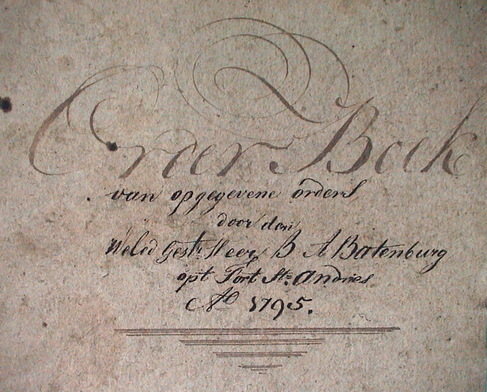 Order Boek
van opgegevene orders
door den
Weled Gestr Heer B A Batenburg
opt Fort St. Andries
Ao 1795.